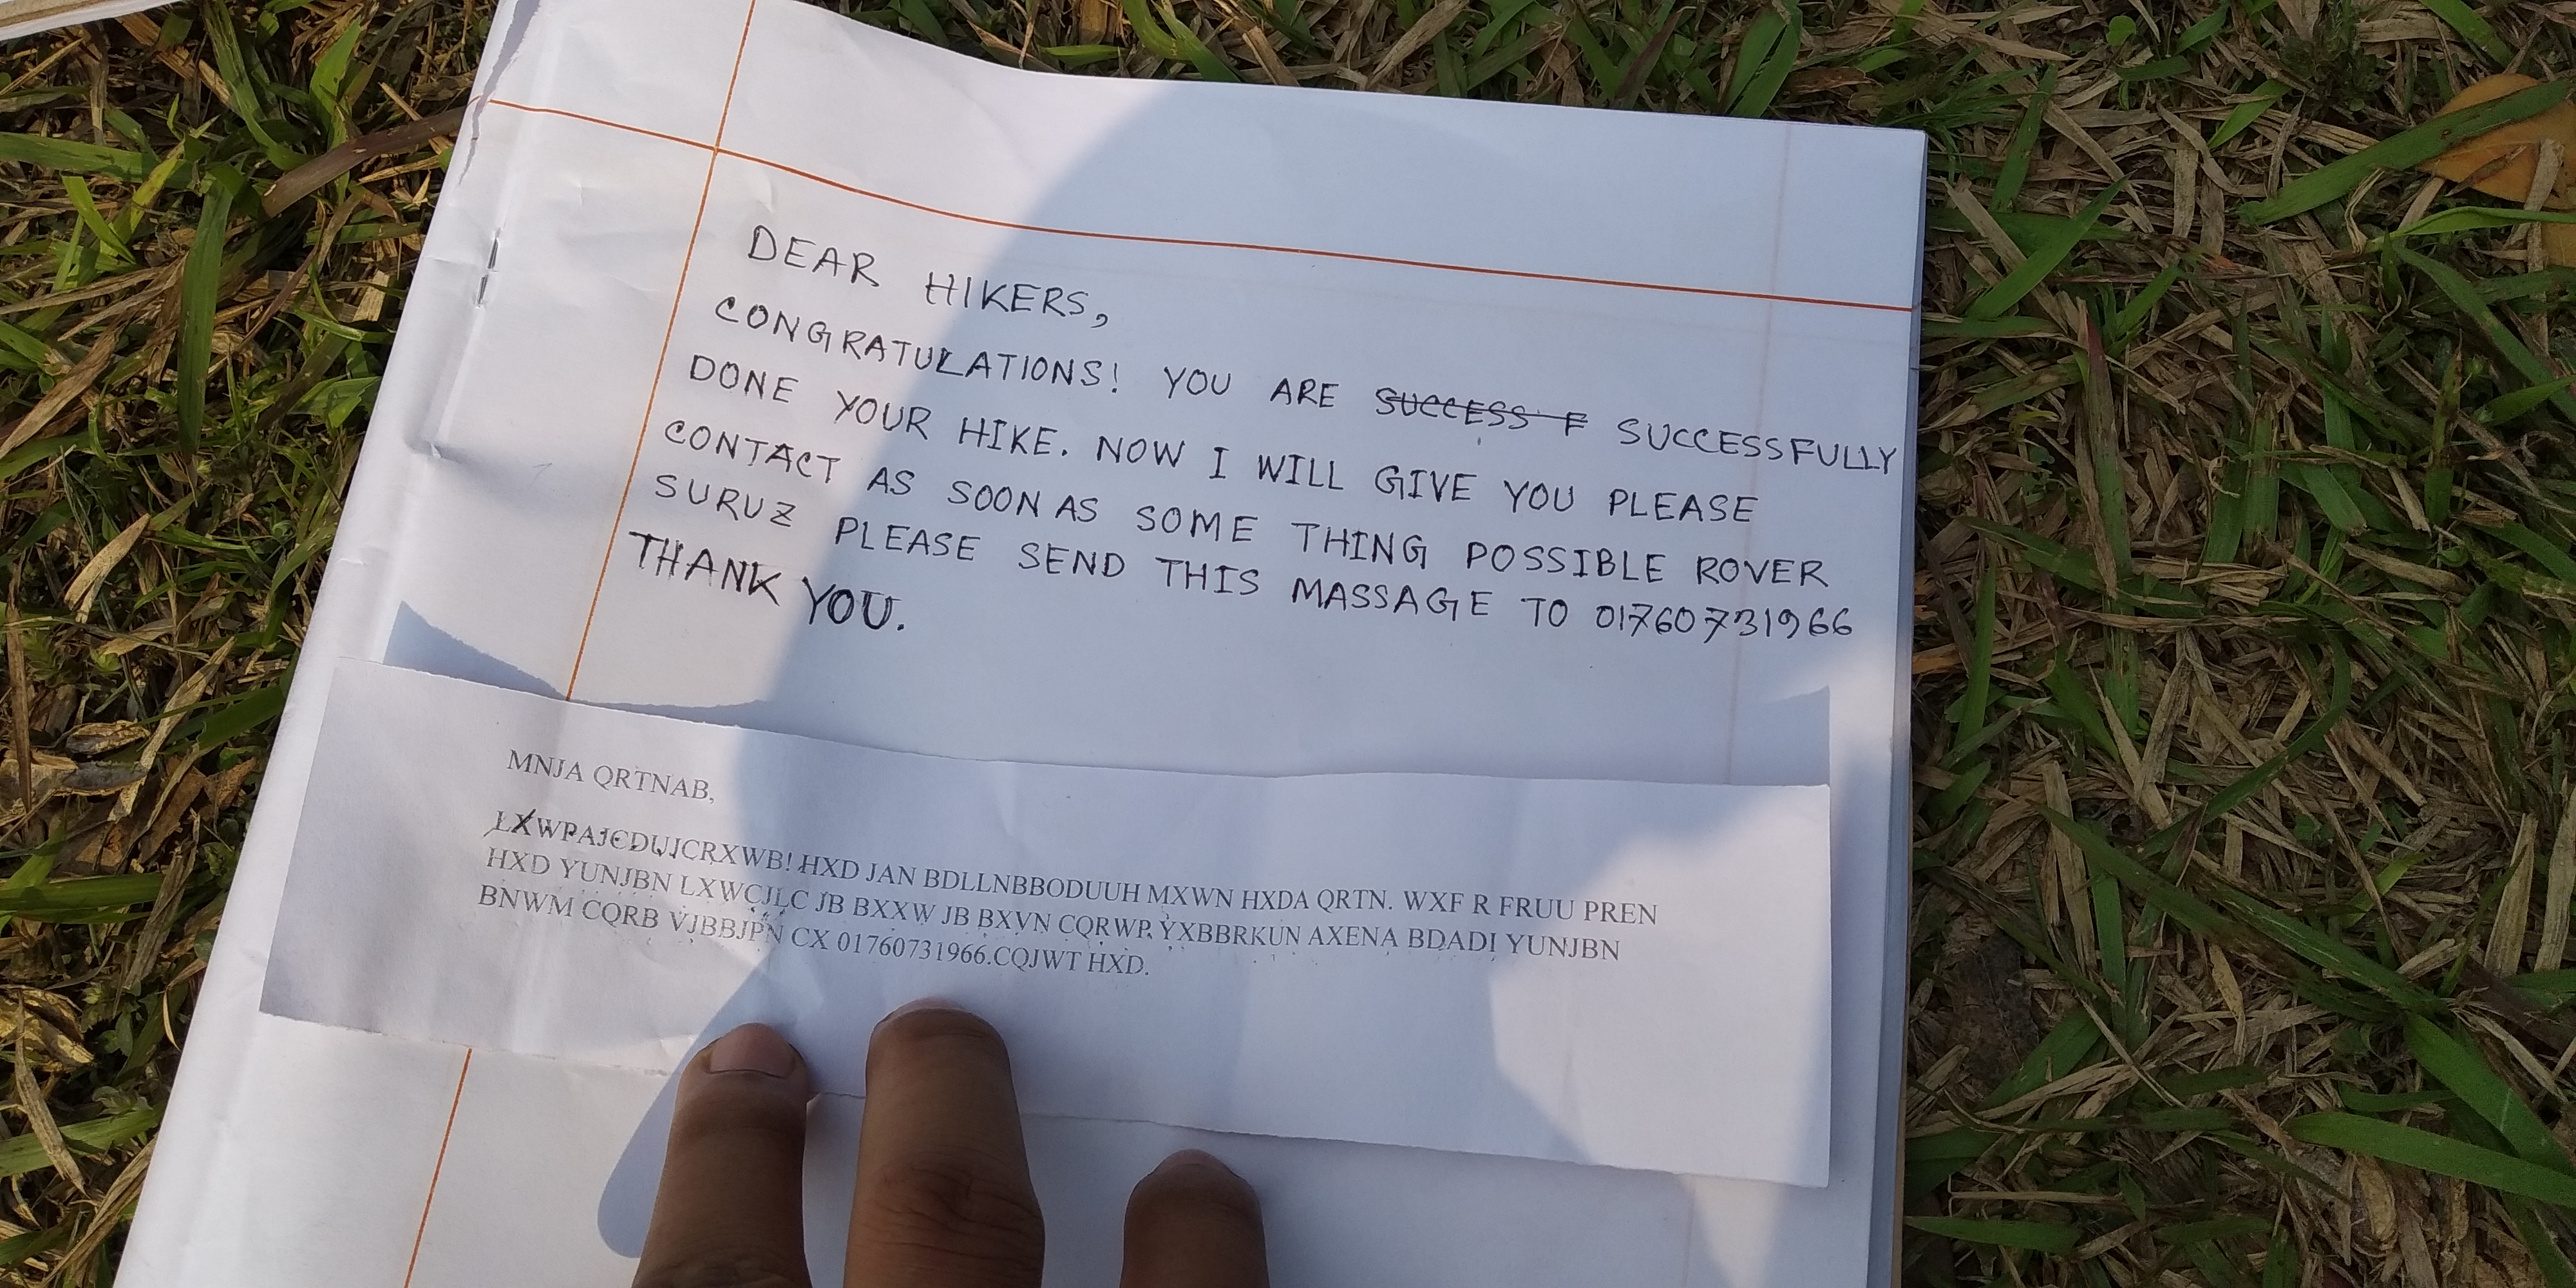 DEAR HIKERS,
CONGRATULATIONS! YOU ARE SUCCESS F SUCCESSFULLY
DONE YOUR HIKE. NOW I WILL GIVE YOU PLEASE
CONTACT AS SOON AS SOME THING POSSIBLE ROVER
SURUZ PLEASE SEND THIS MASSAGE TO 01760731966
THANK YOU.
MNJA QRTNAB,
LXWPAJCDUJCRXWB! HXD JAN BDLLNBBODUUH MXWN HXDA QRTN. WXF R FRUU PREN
HXD YUNJBN LXWCJLC JB BXXW JB BXVN CQRWP YXBBRKUN AXENA BDADI YUNJBN
BNWM CQRB VJBBJPN CX 01760731966.CQJWT HXD.